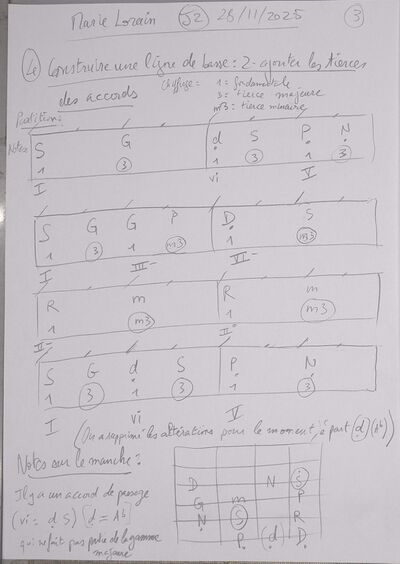 Marie Lorain (J2) 28/11/2025 (3)
(4) Construire une ligne de basse : 2 - ajouter les tierces
des accords
Chiffrage = 1 = fondamentale
3 = tierce majeure
m3 = tierce mineure
Partition :
Notes S G d S P N
1 (3) 1 (3) 1 (3)
I vi V
S G G P D S
1 (3) 1 (m3) 1 (m3)
I III-
R m R m
1 (m3) 1 (m3)
II- II-
S G d S P N
1 (3) 1 (3) 1 (3)
I vi V
(On a supprimé les altérations pour le moment, à part (d) (Ab)
Notes sur le manche :
Il y a un accord de passage
(vi : d S) (d = Ab)
qui ne fait pas partie de la gamme
majeure
D N (S)
G m P
N (S) R
P (d) D